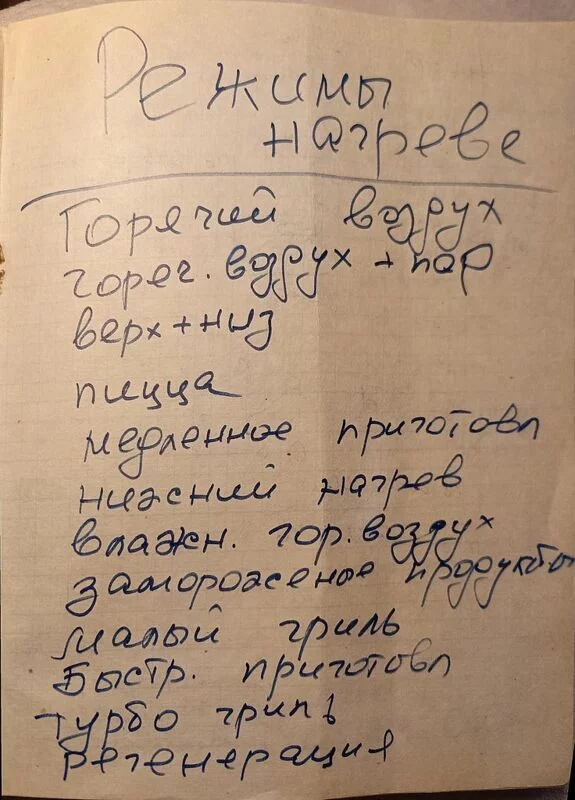 Режимы
нагреве
Горячий воздух
гореч. воздух + пар
верх + низ
пицца
медленное приготовл
нижний нагрев
влажн. гор. воздух
замороженые продукты
малый гриль
Быстр. приготовл
турбо гриль
регенерация